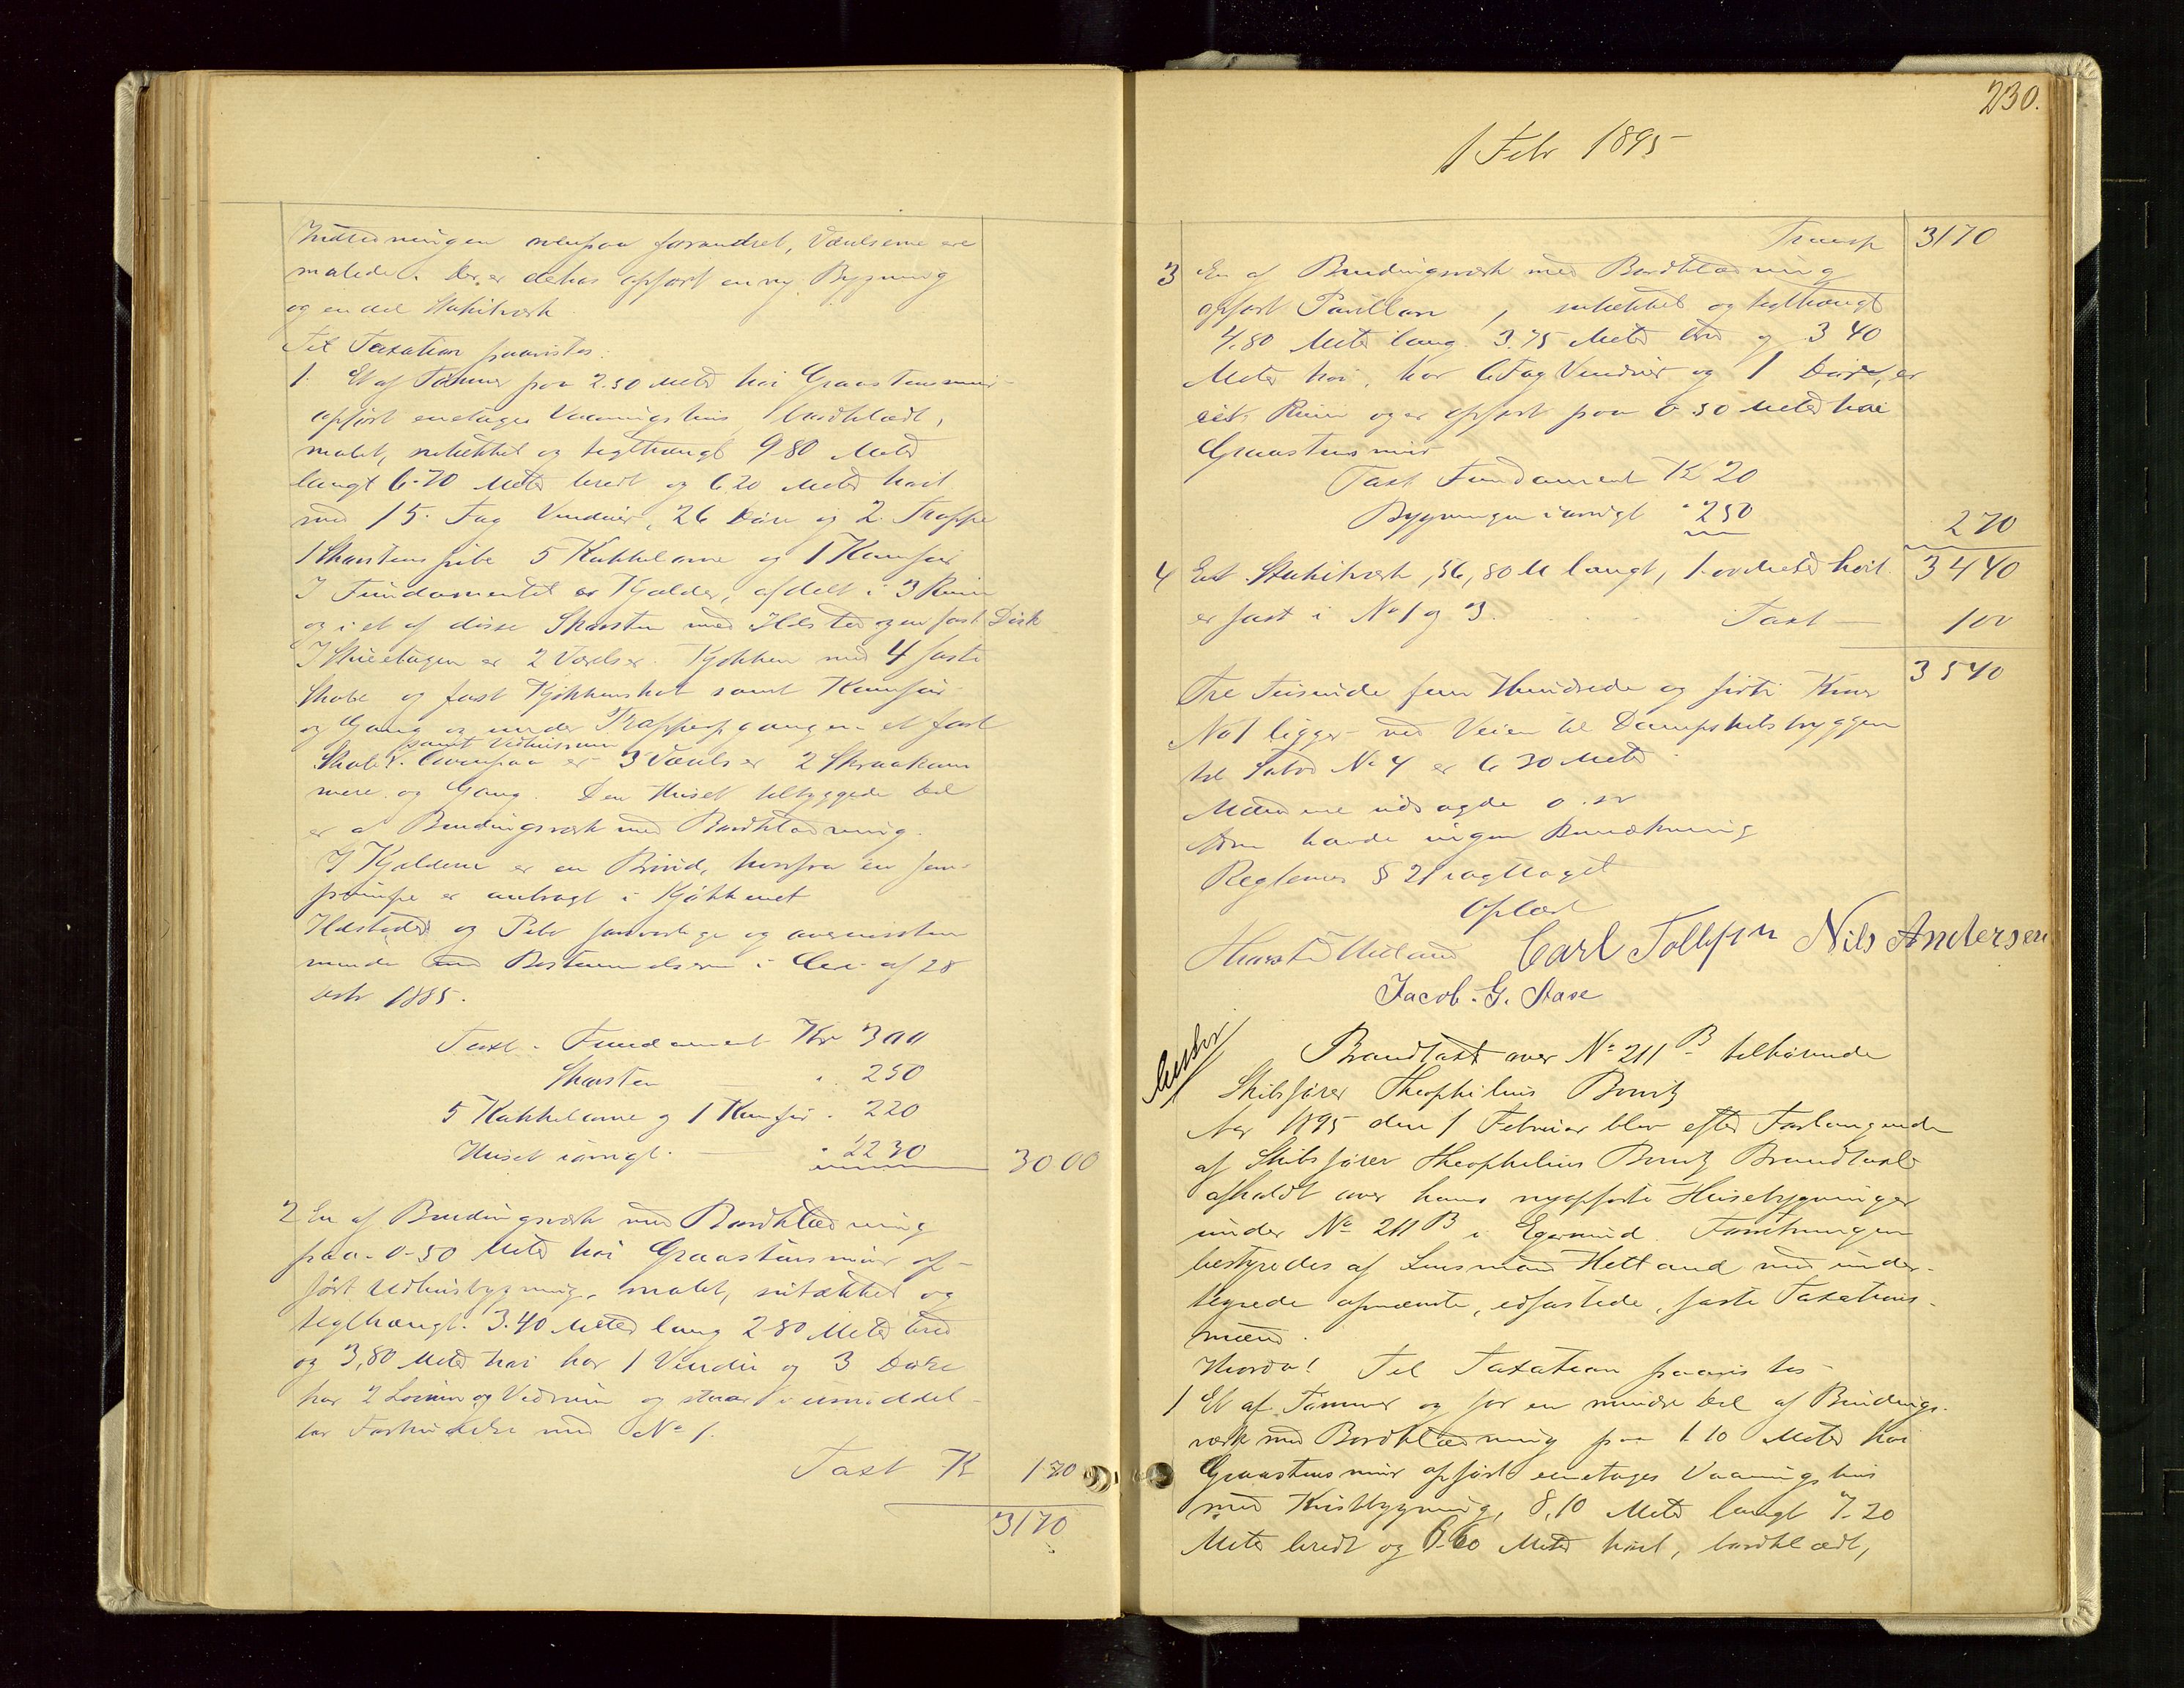 Indredningen ovenpaa forandret, Værelserne ere
malede. Der er dehos opført en ny Bygning
og en del Stakitværk.
Til Taxation paavistes:
1. Et af Tømmer paa 2.50 Meter høi Graastensmuur
opført enetages Vaaningshus, bordklædt,
malet, sutækket og teglhængt 9-80 Meter
langt 6-70 Meter bredt og 6 20 Meter høit
med 15. Fag Vinduer, 26 Døre og 2. Trappe
1 Skorstenspibe 5 Kakkelovne og 1 Komfur
I Fundamentet er Kjelder, afdelt i 3 Rum
og i et af disse Skorsten med Ildsted og en fast Disk
I Stueetagen er 2 Værelser. Kjøkken med 4 faste
Skabe og fast Kjøkkenskab samt Komfur
og Gang og under Trappeopgangen et fast
Skab samt Vedhusrum. Ovenpaa er 3 Værelser 2 Skraakam
mere og Gang. Den Huset tilbyggede Del
er af Bindingsværk med Bordklædning.
I Kjelderen er en Brønd, hvorfra en Jern-
pumpe er anbragt i Kjøkkenet
Ildsteder og Piber forsvarlige og overensstem
mende med Bestemmelserne i Circ af 28
Sebr 1885.
Taxt. Fundament Kr 300
Skorsten " 250
5 Kakkelovne og 1 Komfur " 220
Huset iøvrigt. " 2230 3000
2 En af Bindingsværk med Bordklædning
paa 0-50 Meter høi Graastensmuur op-
ført Udhusbygning, malet, sutækket og
teglhængt. 3.40 Meter lang 2 80 Meter bred
og 3,80 Meter høi har 1 Vindu og 3 Døre
har 2 Lorum og Vedrum og staar i umiddel-
bar Forbindelse med No 1.
Taxt Kr 170
3170
230.
1 Febr 1895
Transp 3170
3 En af Bindingsværk med Bordklædning
opført Pavillon, sutækket og teglhængt
4,80 Meter lang 3.75 Meter bred og 3 40
Meter høi, har 6 Fag Vinduer og 1 Dør, er
eet Rum og er opført paa 0.50 Meter høi
Graastensmuur
Taxt Fundament Kr 20
Bygningen iøvrigt " 250 270
3440
4 Eet Stakitværk, 36,80 M langt, 1.00 Meter høit
er fast i No 1 og 3. Taxt 100
3540
Tre Tusinde fem Hundrede og firti Kroner
No 1 ligger ved Veien til Dampskibsbryggen
til No 4 er 6 30 Meter
Mændene udsagde o.sv
havde ingen Bemærkning
Reglernes § 21 iagttaget
Oplæst
Hetland Carl Tollefsen Nils Andersen
Jacob. G. Aase
Brandtaxt over No 211 B tilhørende
Skibsfører Theophilius Bentz
Aar 1895 den 1 Februar blev efter Forlangende
af Skibsfører Theophilius Bentz Brandtaxt
afholdt over hans nyopførte Husebygninger
under No 211 B i Egersund. Forretningen
bestyredes af Lensmand Hetland med under-
tegnede opnævnte, edfæstede, faste Taxations-
mænd.
Hvorda! Til Taxation paavistes
1 Et af Tømmer og for en mindre Del af Bindings-
værk med Bordklædning paa 1.10 Meter høi
Graastensmuur opført eenetages Vaaningshus
med Kvistbygning, 8,10 Meter langt 7-20
Meter bredt og 6.60 Meter høit, bordklædt,